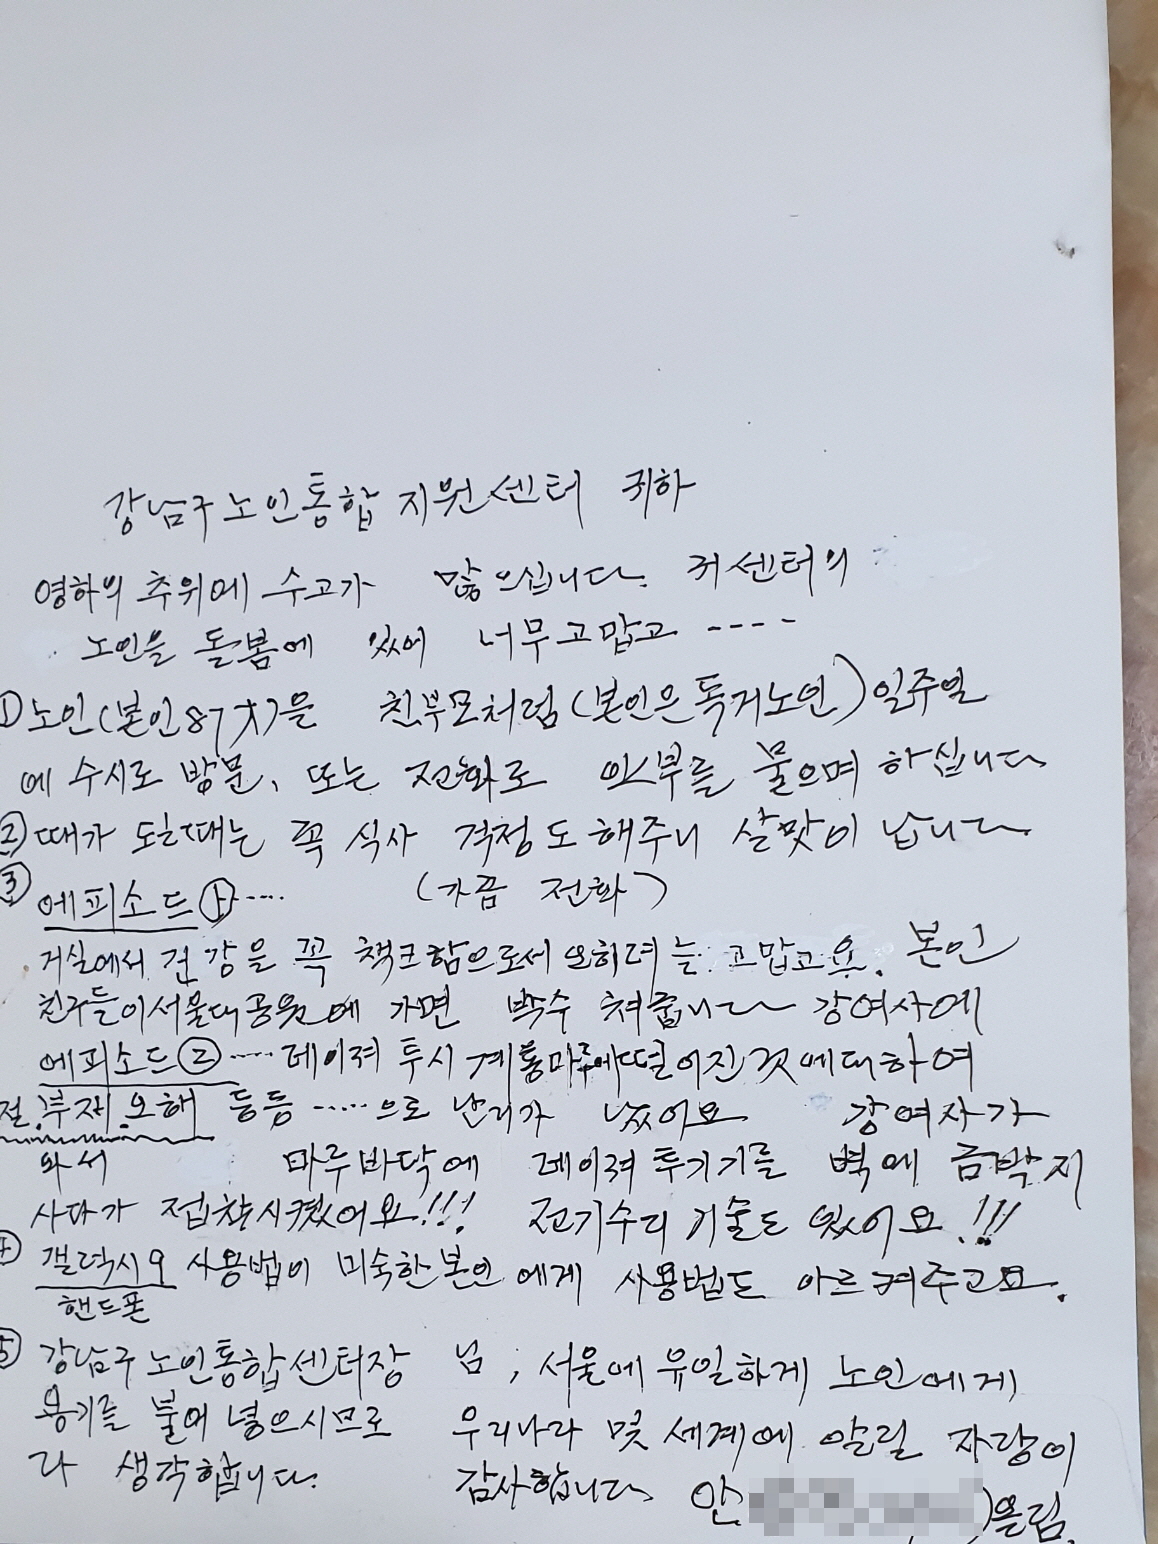 강남구노인통합 지원센터 귀하
영하의 추위에 수고가 많으십니다. 귀센터의
노인을 돌봄에 있어 너무고맙고 ----
① 노인(본인87才)을 친부모처럼(본인은독거노인) 일주일
에 수시로 방문, 또는 전화로 안부를 물으며 하십니다
② 때가 되면때는 꼭 식사 걱정도해주니 살맛이 납니다.
③ 에피소드① ---- (가끔 전화)
거실에서 건강을 꼭 책크함으로서 오히려 는 고맙고요. 본인
친구들이서울대공원에 가면 박수 쳐줍니다 강여사에
에피소드② ---- 레이져 투시 계통마루에떨어진것에대하여
절.부재.오해 등등 .....으로 난리가 났었어요 강여자가
와서 마루바닥에 레이져 투기기를 벽에 금박지
사다가 접착시켰어요!!! 전기수리 기술도 있어요.!!!
④ 갤럭시9 사용법이 미숙한본인에게 사용법도 아르켜주고요.
핸드폰
⑤ 강남구노인통합센터장 님, 서울에 유일하게 노인에게
용기를 불어 넣으시므로 우리나라 및 세계에 알릴 자랑이
라 생각합니다. 감사합니다 안 )올림.